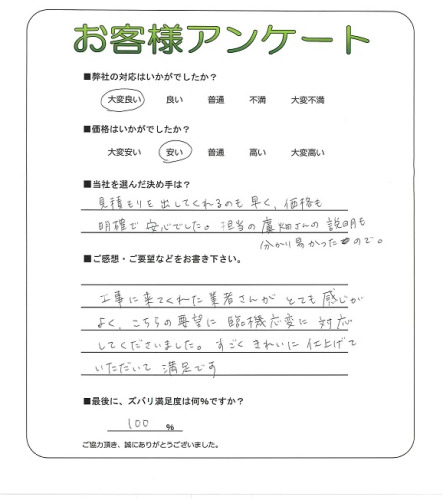 お客様アンケート
■弊社の対応はいかがでしたか？
大変良い 良い 普通 不満 大変不満
■価格はいかがでしたか？
大変安い 安い 普通 高い 大変高い
■当社を選んだ決め手は？
見積もりを出してくれるのも早く、価格も
明確で安心でした。担当の廣畑さんの説明も
分かり易かったので。
■ご感想・ご要望などをお書き下さい。
工事に来てくれた業者さんがとても感じが
よく、こちらの要望に臨機応変に対応
してくださいました。すごくきれいに仕上げて
いただいて満足です
■最後に、ズバリ満足度は何％ですか？
100 ％
ご協力頂き、誠にありがとうございました。